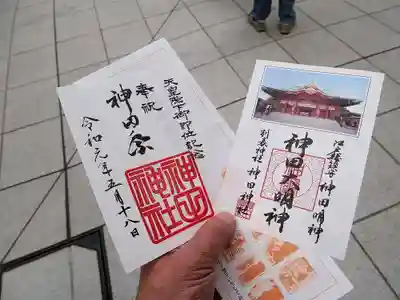 天皇陛下御即位記念
奉祝
神田祭
令和元年五月十八日
神田
神社
江戸総鎮守 神田明神
神田大明神
別表神社 神田神社